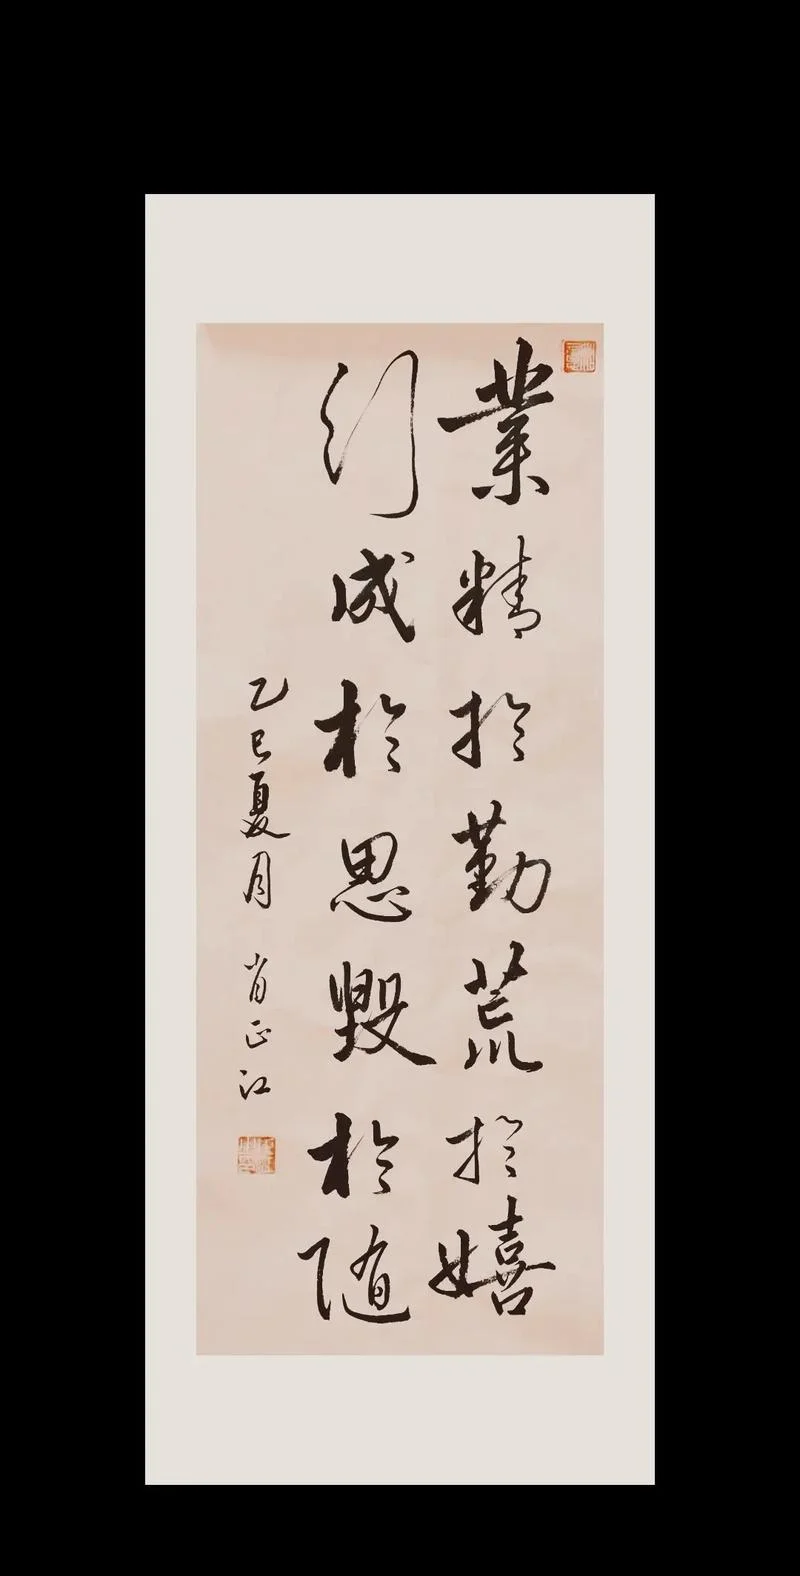 業精於勤荒於嬉
行成於思毀於随
乙巳夏月 肖正江